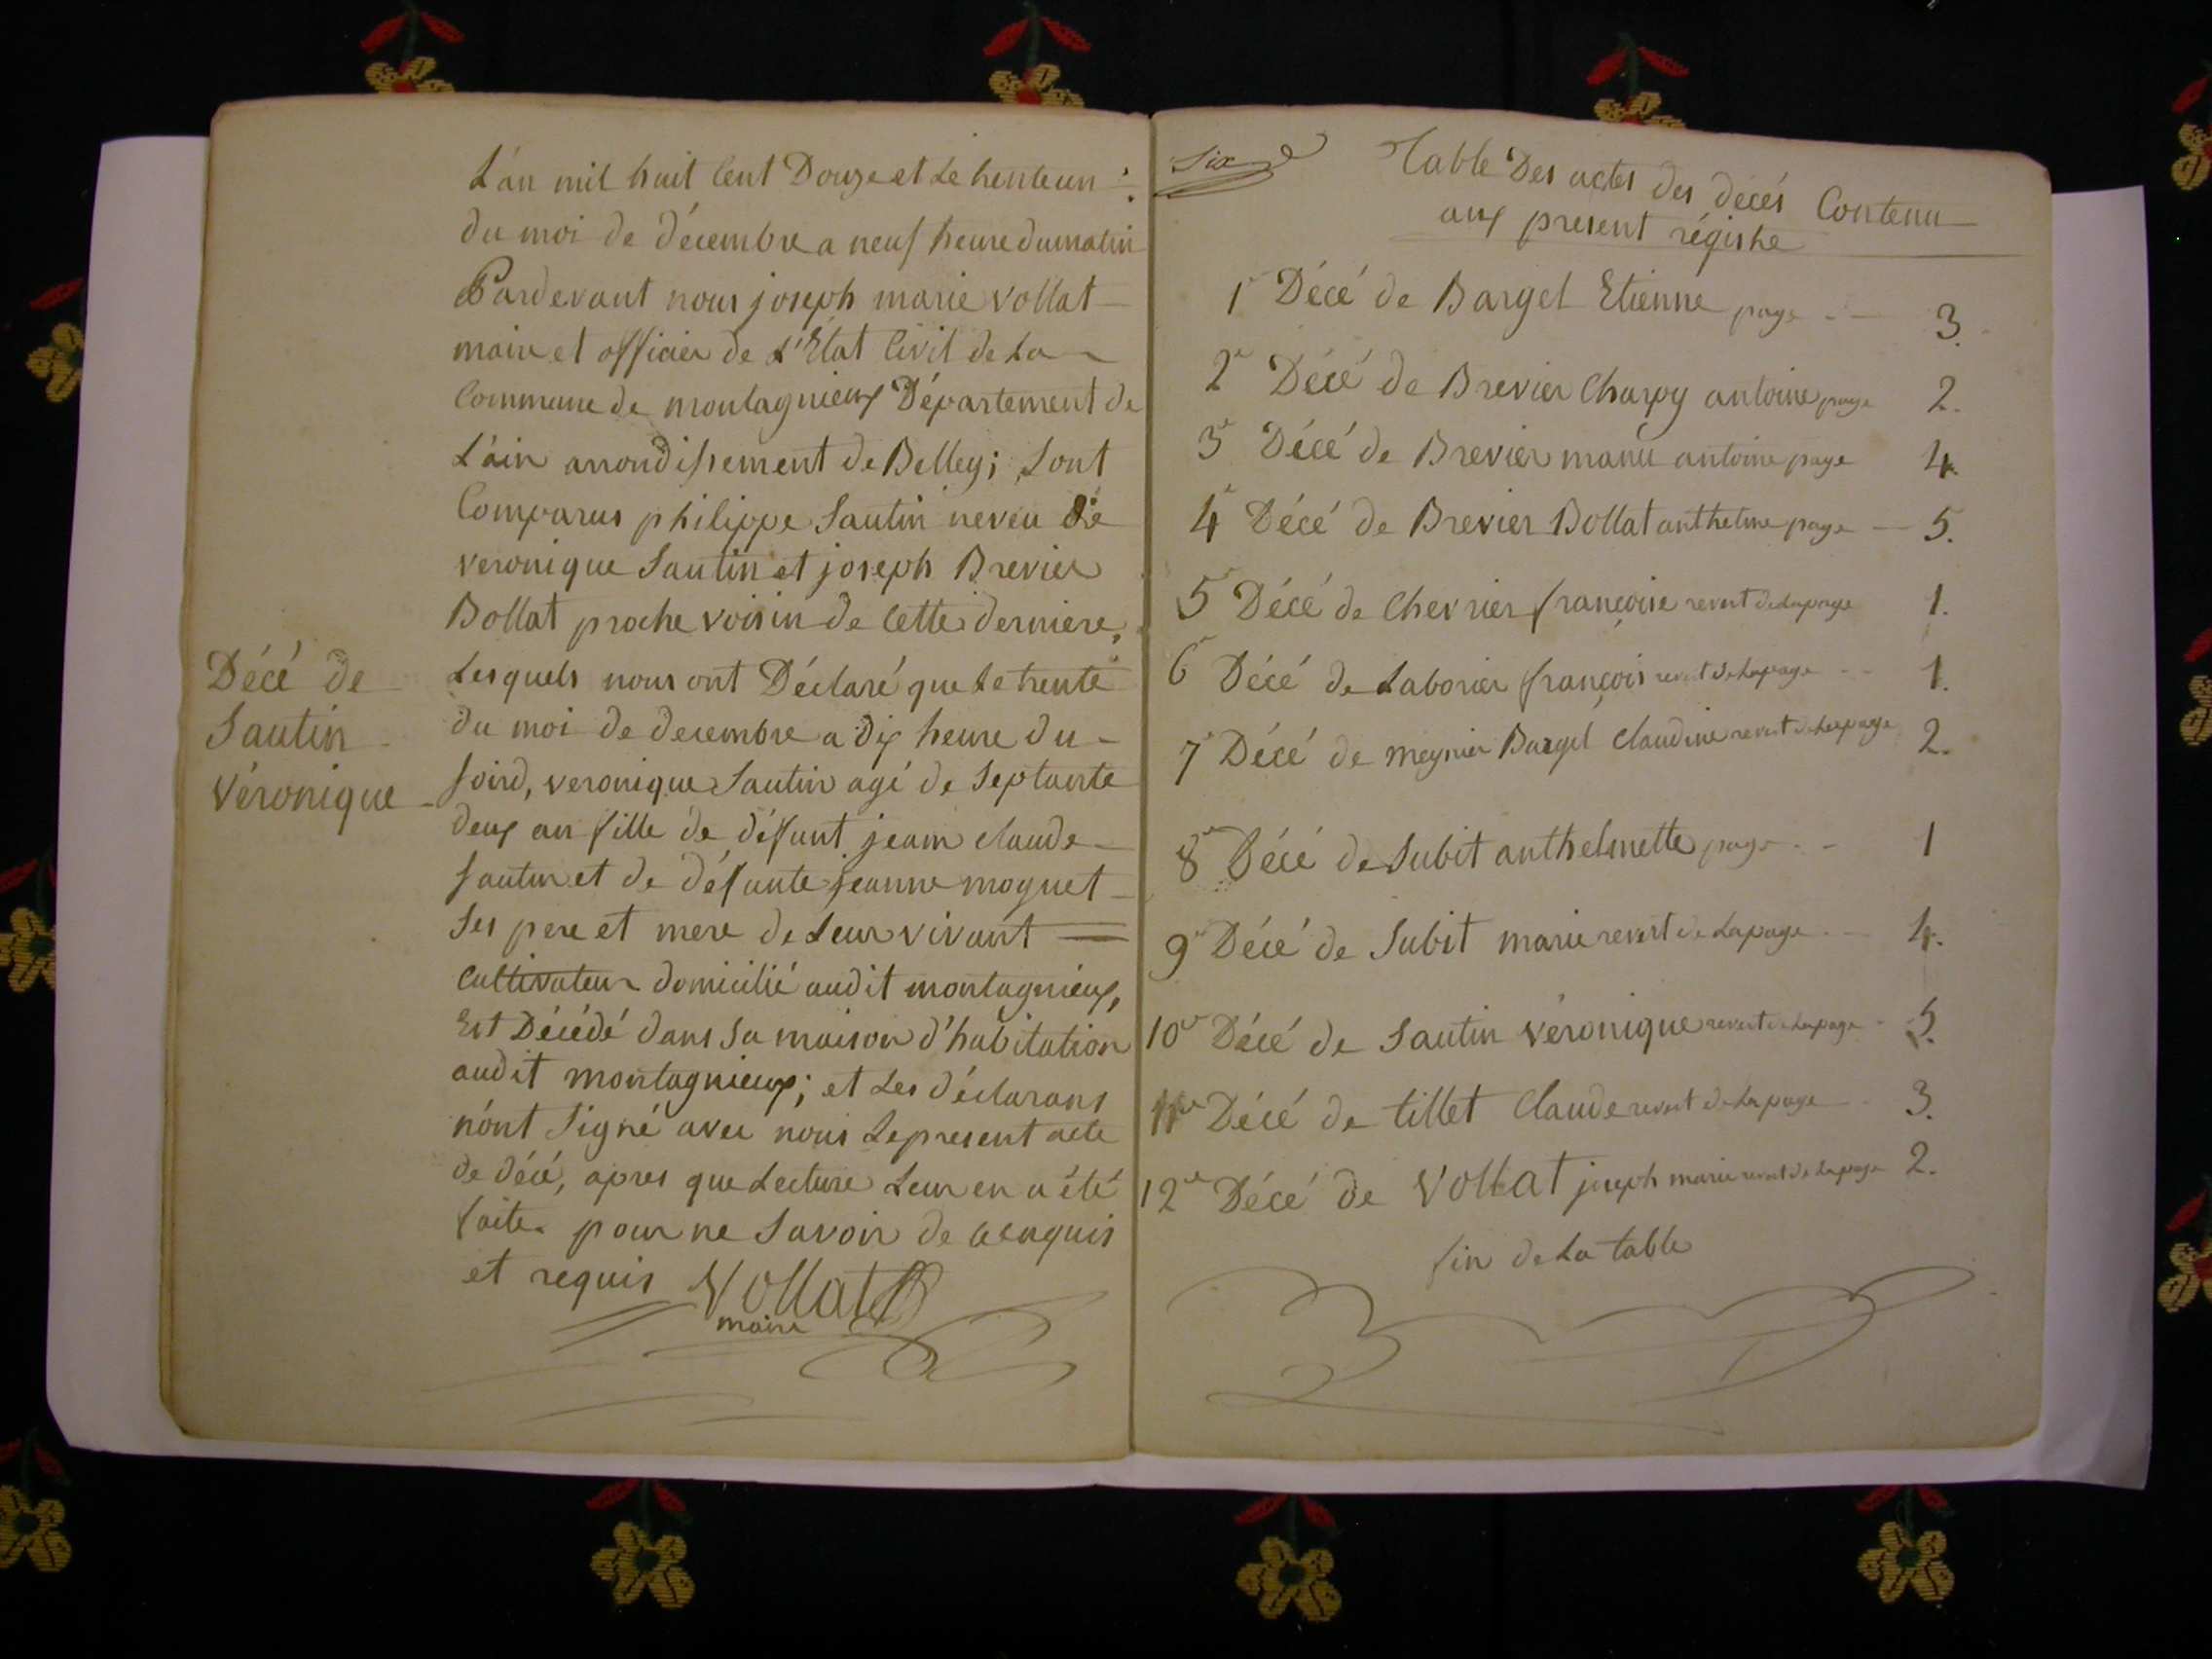 L'an mil huit Cent Douze et Le trente un
du moi de décembre a neuf heure du matin
Pardevant nous joseph marie vollat
maire et officier de L'Etat Civil de La
Commune de montagnieux Département de
L'ain arrondissement de Belley; Sont
Comparus philippe Sautin neveu de
veronique Sautin et joseph Brevier
Bollat proche voisin de Cette derniere,
Lesquels nous ont Déclaré que Le trente
du moi de decembre a dix heure du
soird, veronique Sautin agé de Septante
deux an fille de défunt jean claude
Sautin et de défunte jeanne moguet
Ses pere et mere de Leur vivant
Cultivateur domicilié audit montagnieux,
Est Décédé dans Sa maison d'habitation
audit montagnieux; et Les déclarans
n'ont Signé avec nous Le present acte
de décé, apres que Lecture Leur en a été
faite. pour ne Savoir de ce enquis
et requis Vollat
maire
Décé de
Sautin
Véronique
Six
Table Des actes des decés Contenu
aux present régistre
1r Décé de Bargel Etienne page 3.
2e Décé de Brevier Charpy antoine page 2.
3e Décé de Brevier manu antoine page 4.
4e Décé de Brevier Bollat anthelme page 5.
5e Décé de Chevrier françoise revert de La page 1.
6e Décé de Laborier françois revert de La page 1.
7e Décé de meynier Bargel Claudine revert de La page 2.
8e Décé de Subit anthelmette page 1
9e Décé de Subit marie revert de La page 4.
10e Décé de Sautin véronique revert de La page 5.
11e Décé de tillet Claude revert de La page 3.
12e Décé de Vollat joseph marie revert de La page 2.
fin de La table